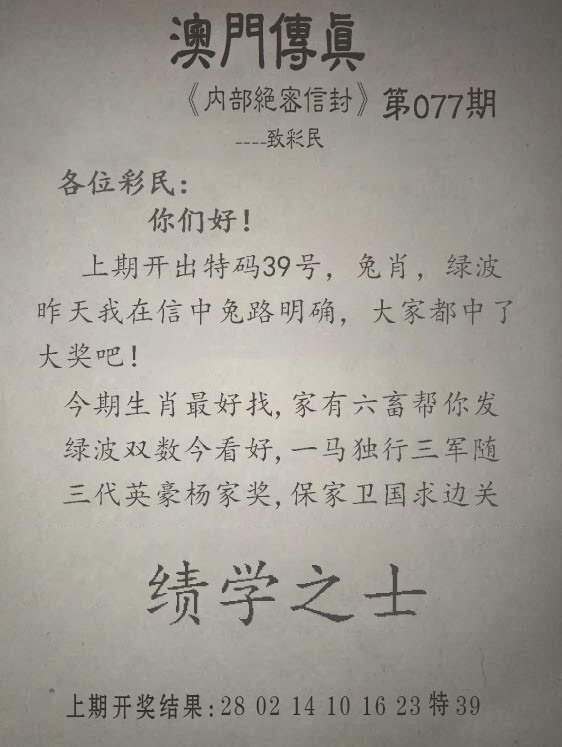 澳門傳眞
《内部絕密信封》第077期
----致彩民
各位彩民：
你们好！
上期开出特码39号，兔肖，绿波
昨天我在信中兔路明确，大家都中了
大奖吧！
今期生肖最好找,家有六畜帮你发
绿波双数今看好,一马独行三军随
三代英豪杨家奖,保家卫国求边关
绩学之士
上期开奖结果:28 02 14 10 16 23特39